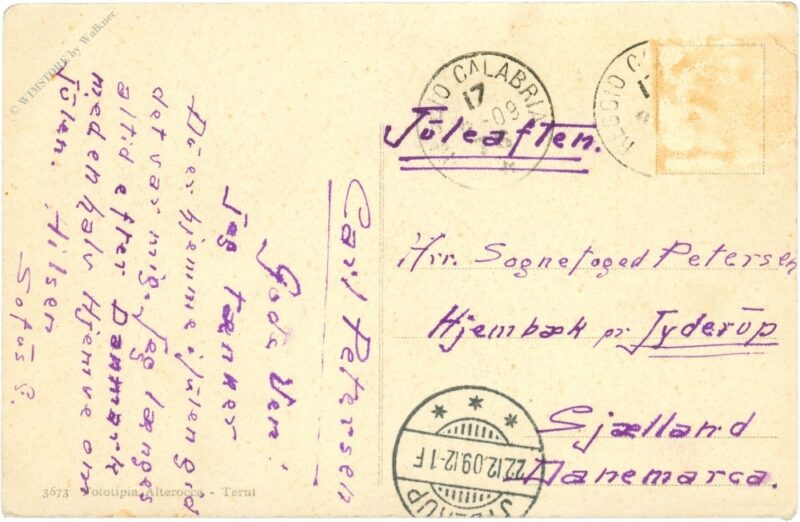 © WIMSTORE by Walkner
Carl Petersen
Gode Ven!
Jeg tænker
Du er hjemme i Julen gid
det var mig. Jeg længes
altid efter Danmark
med en halv Hjemve om
Julen. Hilsen
Sofus P.
REGGIO CALABRIA
17
-09
REGGIO CA
Juleaften.
Hrr. Sognefoged Petersen
Hjembæk pr. Jyderup
Sjælland
Danemarca.
22.12.09.12-1F
JYDERUP
3673 Fototipia Alterocca - Terni